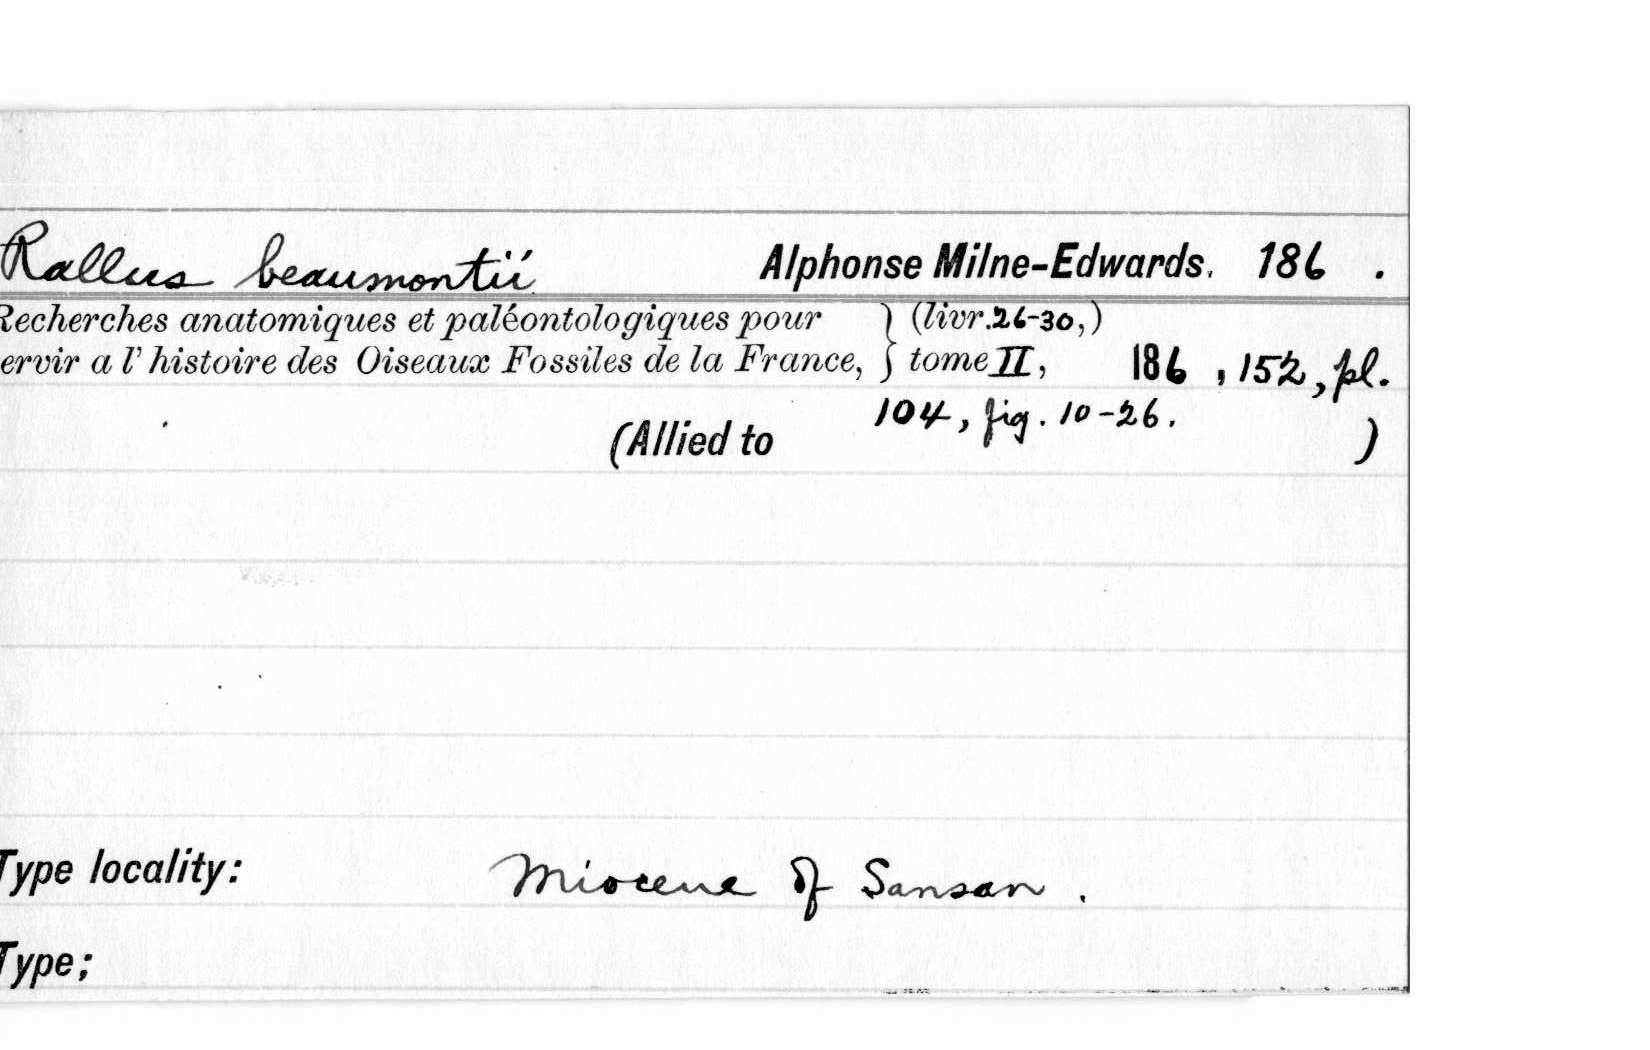 Rallus beaumontii Alphonse Milne-Edwards. 186 .
Recherches anatomiques et paléontologiques pour } (livr. 26-30,)
ervir a l'histoire des Oiseaux Fossiles de la France, } tome II, 186 , 152, pl.
104, fig. 10-26.
(Allied to )
Type locality: Miocene of Sansan .
Type;